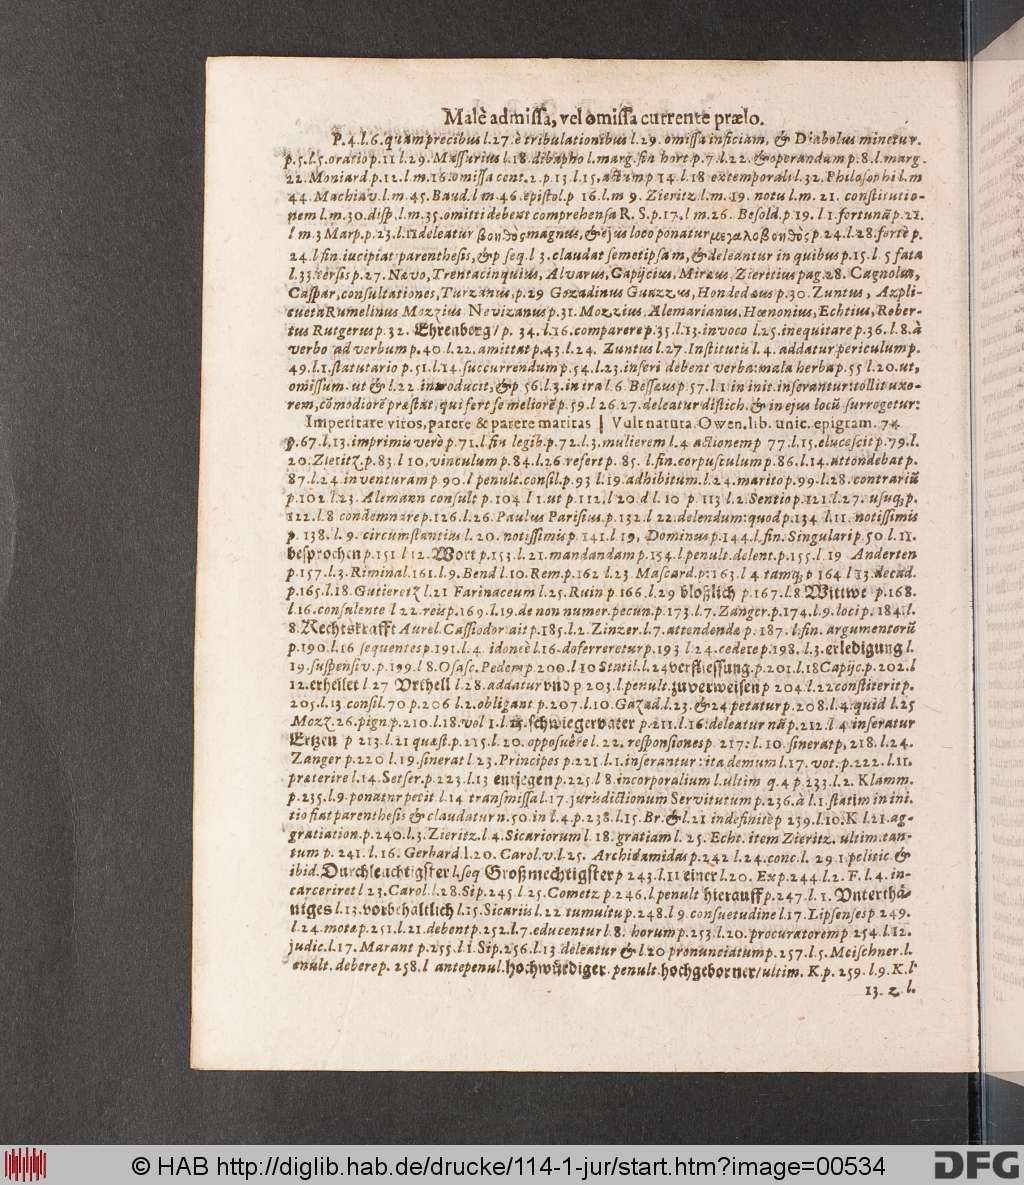 Malè admissa, vel omissa currente prælo.
P. 4. l. 6. quam precibus l. 27. è tribulationibus l. 29. omissa inficiam, & Diabolus minetur.
p. 5. l. 5. oratio p. 11 l. 29. Massurius l. 18. dibapho l. marg. fin hort p. 7. l. 22. & operandum p. 8. l. marg.
22. Moniard p. 12. l. m. 16. omissa cent. 2. p. 13. l. 15, actump 14. l. 18 extemporali l. 32. Philosophi l. m
44. Machiav. l. m. 45. Baud. l m. 46. epistol. p 16. l. m 9. Zieritz l. m. 19. notu l. m. 21. constitutio-
nem l. m. 30. disp. l. m. 35. omitti debent comprehensa R. S. p. 17. l m. 26. Besold. p. 19. l. 1. fortunā p. 21.
l m. 3 Marp. p. 23. l. 11 deleatur βοηθὸς magnus, & ejus loco ponatur μεγαλοβοηθὸς p. 24. l. 28. fortè p.
24. l fin. iucipiat parenthesis, & p seq. l 3. claudat semetipsam, & deleantur in quibus p. 15. l 5 fata
l. 33. versis p. 27. Nævo, Trentacinquius, Alvarus, Capijcius, Miræus, Zieritius pag. 28. Cagnolus,
Caspar, consultationes, Turzanus, p. 29 Gozadinus Guazzus, Hondedæus p. 30. Zuntus, Azpli-
cueta Rumelinus Mozzius Nevizanus p. 31. Mozzius, Alemarianus, Hœnonius, Echtius, Rober-
tus Rutgerus p. 32. Ehrenberg/ p. 34. l. 16. comparere p. 35. l. 13. invoco l. 25. inequitare p. 36. l. 8. à
verbo ad verbum p. 40. l. 22. amittat p. 43. l. 24. Zuntus l. 27. Institutis l. 4. addatur periculum p.
49. l. 1. statutario p. 51. l. 14. succurrendum p. 54. l. 23. inseri debent verba: mala herba p. 55 l. 20. ut,
omissum. ut & l. 22 introducit, & p 56. l. 3. in ira l. 6. Bessæus p. 57. l. 1 in init. inserantur: tollit uxo-
rem, cōmodiorē præstat, qui fert se meliorē p. 59. l 26. 27. deleatur distich. & in ejus locū surrogetur:
Imperitare viros, parere & parere maritas | Vult natura. Owen. lib. unic. epigram. 7*
p. 67. l. 13. imprimis verò p. 71. l. fin legib. p. 72. l. 3. mulierem l. 4 actionem p 77. l. 15. elucescit p. 79. l.
20. Zieritz. p. 83. l 10, vinculum p. 84. l. 26 refert p. 85. l. fin. corpusculum p. 86. l. 14. attondebat p.
87. l. 24 inventuram p 90. l penult. consil. p. 93 l. 19. adhibitum. l. 24. marito p. 99. l. 28. contrariū
p. 102 l. 23. Alemann consult p. 104 l 1. ut p. 112. l 20. d l. 10 p. 113 l. 2. Sentio p. 121. l. 27. usuq; p.
122. l. 8 condemnare p. 126. l. 26. Paulus Parisius p. 132. l 22. delendum: quod p. 134 l. 11. notissimis
p. 138. l. 9. circumstantius l. 20. notissimus p. 141. l. 19, Dominus p. 144. l. fin. Singulari p. 50 l. 11.
besprochen p. 151 l 12. Wort p. 153. l. 21. mandandam p. 154. l. penult. delent. p. 155. l. 19 Anderten
p. 157. l. 3. Riminal. 161. l. 9. Bend l. 10. Rem. p. 162 l. 23. Mascard. p. 163. l 4 tamq; p 164 l 13. decad.
p. 165. l. 18. Gutieretz l. 21 Farinaceum l. 25. Ruin p. 166. l. 29 bloßlich p. 167. l. 8. Wittwe p. 168.
l. 16. consulente l 22. reis p. 169. l. 19. de non numer. pecun. p. 173. l. 7. Zanger. p. 174. l. 9. loci p. 184. l.
8. Rechtskrafft Aurel. Cassiodor ait p. 185. l. 2. Zinzer. l. 7. attendenda p. 187. l. fin. argumentorū
p. 190. l. 16 sequentes p. 191. l. 4. idoneè l. 16. doferreretur p. 193 l 24. cedere p. 198. l. 3. erledigung l.
19. suspensiv. p. 199. l 8. Osasc. Pedem p. 200. l 10 Statil. l. 24 verfliessung. p. 201. l. 18 Capijc. p. 202. l
12. ertheilet l 27 Urthell l. 28. addatur und p 203. l. penult. zu verweisen p 204. l. 22 constiterit p.
205. l. 13. consil. 70 p. 206 l. 2. obligant p. 207. l. 10. Gazad. l. 23. & 24 petatur p. 208. l. 4. quid l. 25
Mozz. 26. pign. p. 210. l. 18. vol 1. l. 13. schwiegervater p. 211. l. 16. deleatur nā p. 212. l 4 inseratur
Ertzen p 213. l. 21 quæst. p. 215. l. 20. opposuere l. 22. responsiones p. 217. l. 10. sinerat p, 218. l. 24.
Zanger p. 220 l. 19. sinerat l 23. Principes p 221. l. 1. inserantur: ita demum l. 17. vot. p. 222. l. 11.
præterire l. 14. Setser. p. 223. l. 13 entjegen p. 225. l 8. incorporalium l. ultim q. 4 p. 233. l. 2. Klamm.
p. 235. l. 9. ponatur petit l. 14 transmissa l. 17. jurudictionum Servitutum p. 236. à l. 1. statim in ini.
tio fiat parenthesis & claudatur n. 50. in l. 4. p. 238. l. 15. Br. & l. 21 indefinitè p 239. l. 10. K l. 21. ag-
gratiation. p. 240. l. 3. Zieritz. l 4. Sicariorum l. 18. gratiam l. 25. Echt. item Zieritz. ultim. tan-
tum p. 241. l. 16. Gerhard. l. 20. Carol. v. l. 25. Archidamidas p. 242 l. 24. conc. l. 29 1. pelitic &
ibid. Durchleuchtigster l. seq Großmechtigster p 243. l. 11 einer l. 20. Exp. 244. l. 2. F. l. 4. in-
carceriret l 23. Carol. l. 28. Sip. 245. l 25. Cometz p. 246. l. penult hierauff p. 247. l. 1. Unterthä-
niges l. 13. vorbehaltlich l. 15. Sicariis l. 22 tumultu p. 248. l 9 consuetudine l. 17. Lipsenses p 249.
l. 24. mota p. 251. l. 21. debent p. 252. l. 7. educentur l. 8. horum p. 253. l. 20. procuratorem p 254. l. 12.
judic. l. 17. Marant p. 255. l. 1. Sip. 256. l. 13 deleatur & l. 20 pronunciatum p. 257. l. 5. Meischner. l.
enult. debere p. 258. l antepenul. hochwürdiger. penult. hochgeborner/ ultim. K. p. 259. l. 9. K. l.
13. 2. l.
© HAB http://diglib.hab.de/drucke/114-1-jur/start.htm?image=00534
DFG